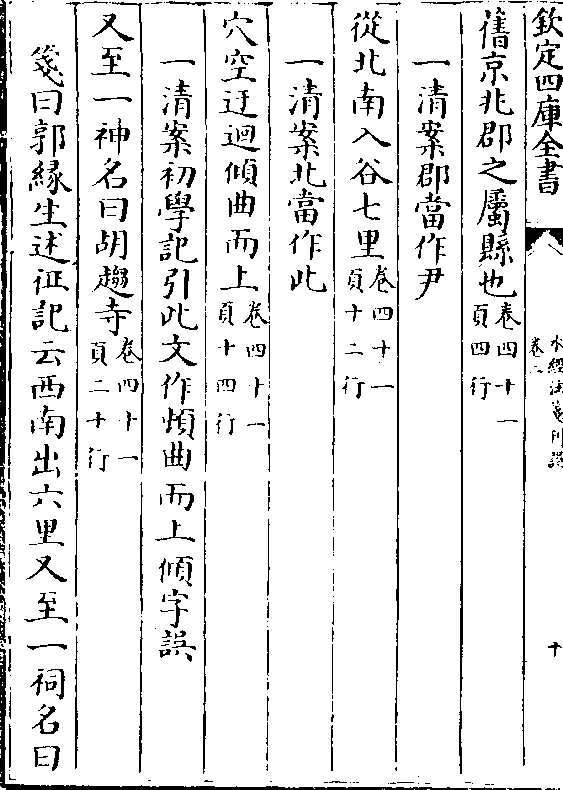 欽定四庫全書
水經注箋刊誤
卷二
十
舊京兆郡之屬縣也卷四十一頁四行
一清案郡當作尹
從北南入谷七里卷四十一頁十二行
一清案北當作此
穴空迂迴傾曲而上卷四十一頁十四行
一清案初學記引此文作煩曲而上傾字誤
又至一神名曰胡趨寺卷四十一頁二十行
箋曰郭緣生述征記云西南出六里又至一祠名曰